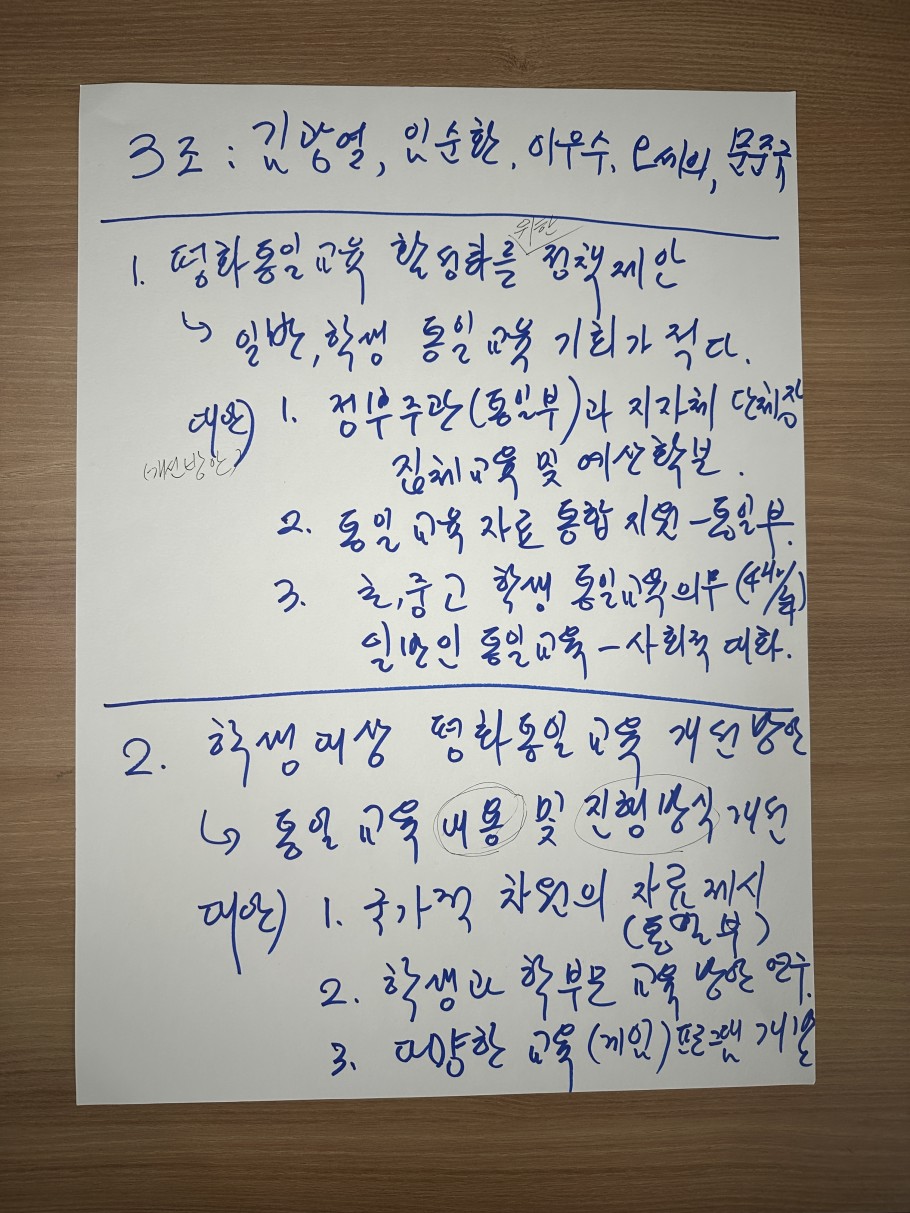 3조 : 김광열, 임순환, 이우수, 문준국
1. 평화통일 교육 활성화를 위한 정책 제안
↳ 일반, 학생 통일 교육 기회가 적다.
대안) 1. 정부주관(통일부)과 지자체 단체장
(개선방안)
집체교육 및 예산확보.
2. 통일 교육 자료 통합 지원 - 통일부.
3. 초,중고 학생 통일교육 의무
일반인 통일교육 - 사회적 대화.
2. 학생대상 평화통일 교육 개선 방안
↳ 통일 교육 내용 및 진행방식 개선
대안) 1. 국가적 차원의 자료 제시
(통일부)
2. 학생과 학부모 교육 방안 연구.
3. 다양한 교육 (게임) 프로그램 개발